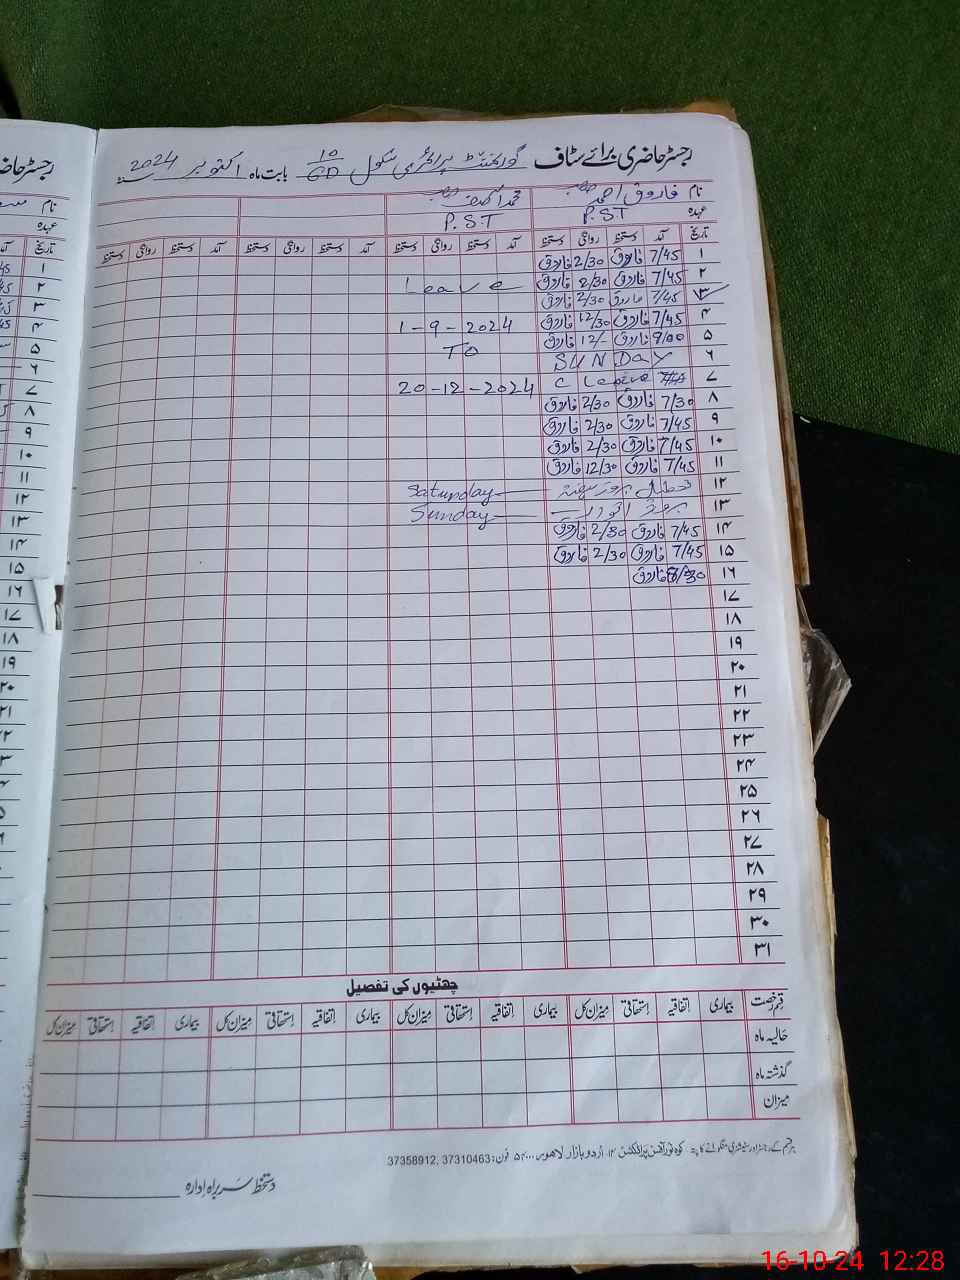 رجسٹر حاضری برائے سٹاف گورنمنٹ پرائمری سکول 10/GD بابت ماہ اکتوبر 2024
نام فاروق احمد محمد آصف
عہدہ P.S.T P.S.T
تاریخ آمد دستخط روانگی دستخط آمد دستخط روانگی دستخط آمد دستخط روانگی دستخط آمد دستخط روانگی دستخط
۱ 7/45 فاروق 2/30 فاروق
۲ 7/45 فاروق 2/30 فاروق Leave
۳ 7/45 فاروق 2/30 فاروق
۴ 7/45 فاروق 12/30 فاروق 1-9-2024
۵ 9/00 فاروق 12/- فاروق TO
۶ SUNDay
۷ C Leave 20-12-2024
۸ 7/30 فاروق 2/30 فاروق
۹ 7/45 فاروق 2/30 فاروق
۱۰ 7/45 فاروق 2/30 فاروق
۱۱ 7/45 فاروق 12/30 فاروق
۱۲ تعطیل بروز ہفتہ Saturday
۱۳ بروز اتوار Sunday
۱۴ 7/45 فاروق 2/30 فاروق
۱۵ 7/45 فاروق 2/30 فاروق
۱۶ فاروق
۱۷
۱۸
۱۹
۲۰
۲۱
۲۲
۲۳
۲۴
۲۵
۲۶
۲۷
۲۸
۲۹
۳۰
۳۱
چھٹیوں کی تفصیل
قسم رخصت بیماری اتفاقیہ استحقاقی میزان کل بیماری اتفاقیہ استحقاقی میزان کل بیماری اتفاقیہ استحقاقی میزان کل بیماری اتفاقیہ استحقاقی میزان کل
حالیہ ماہ
گذشتہ ماہ
میزان
ہر قسم کے رجسٹر اور سٹیشنری منگوانے کا پتہ کوہ نور آفسٹ پرنٹنگ ۱۴۔ اردو بازار لاہور فون: 37310463, 37358912
دستخط سربراہ ادارہ
16-10-24 12:28